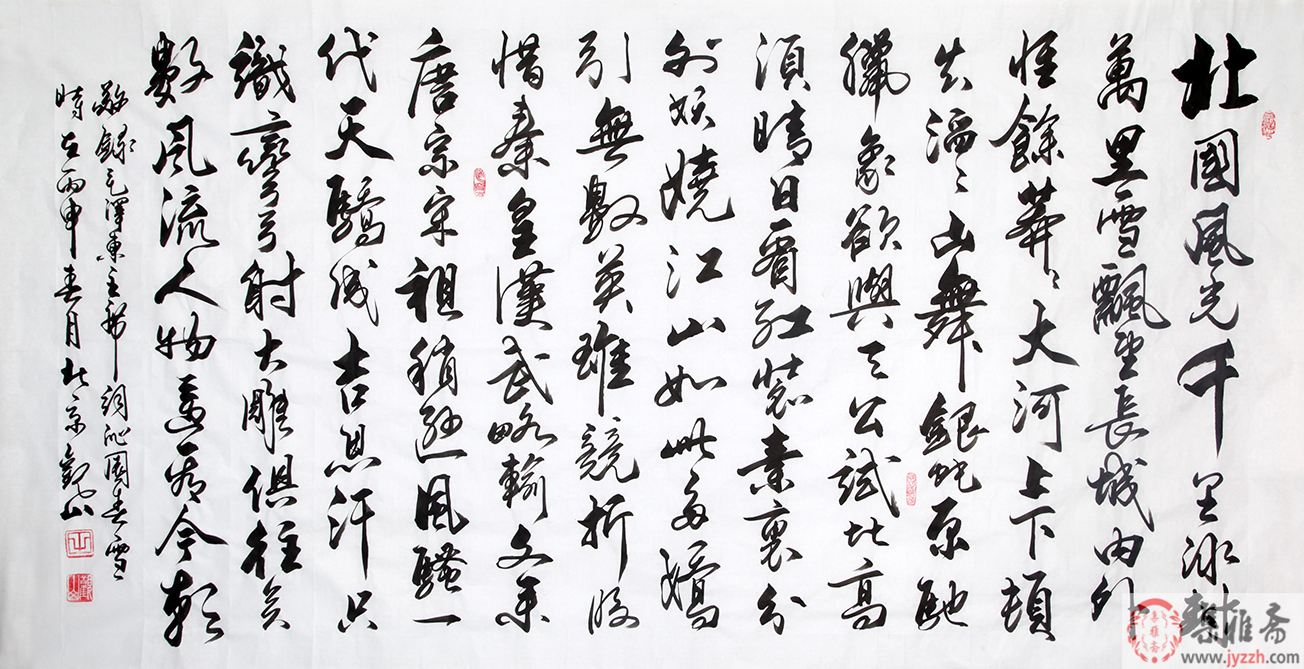 北國風光千里冰封
萬里雪飄望長城内外
惟餘莽〻大河上下頓
失滔〻山舞銀蛇原馳
臘象欲與天公試比高
須晴日看紅裝素裹分
外妖嬈江山如此多嬌
引無數英雄競折腰
惜秦皇漢武略輸文采
唐宗宋祖稍遜風騷一
代天驕成吉思汗只
識彎弓射大雕俱往矣
數風流人物還看今朝
敬錄毛澤東主席詞沁園春雪
時在丙申春月北京觀山
聚雅斋
www.jyzzh.com